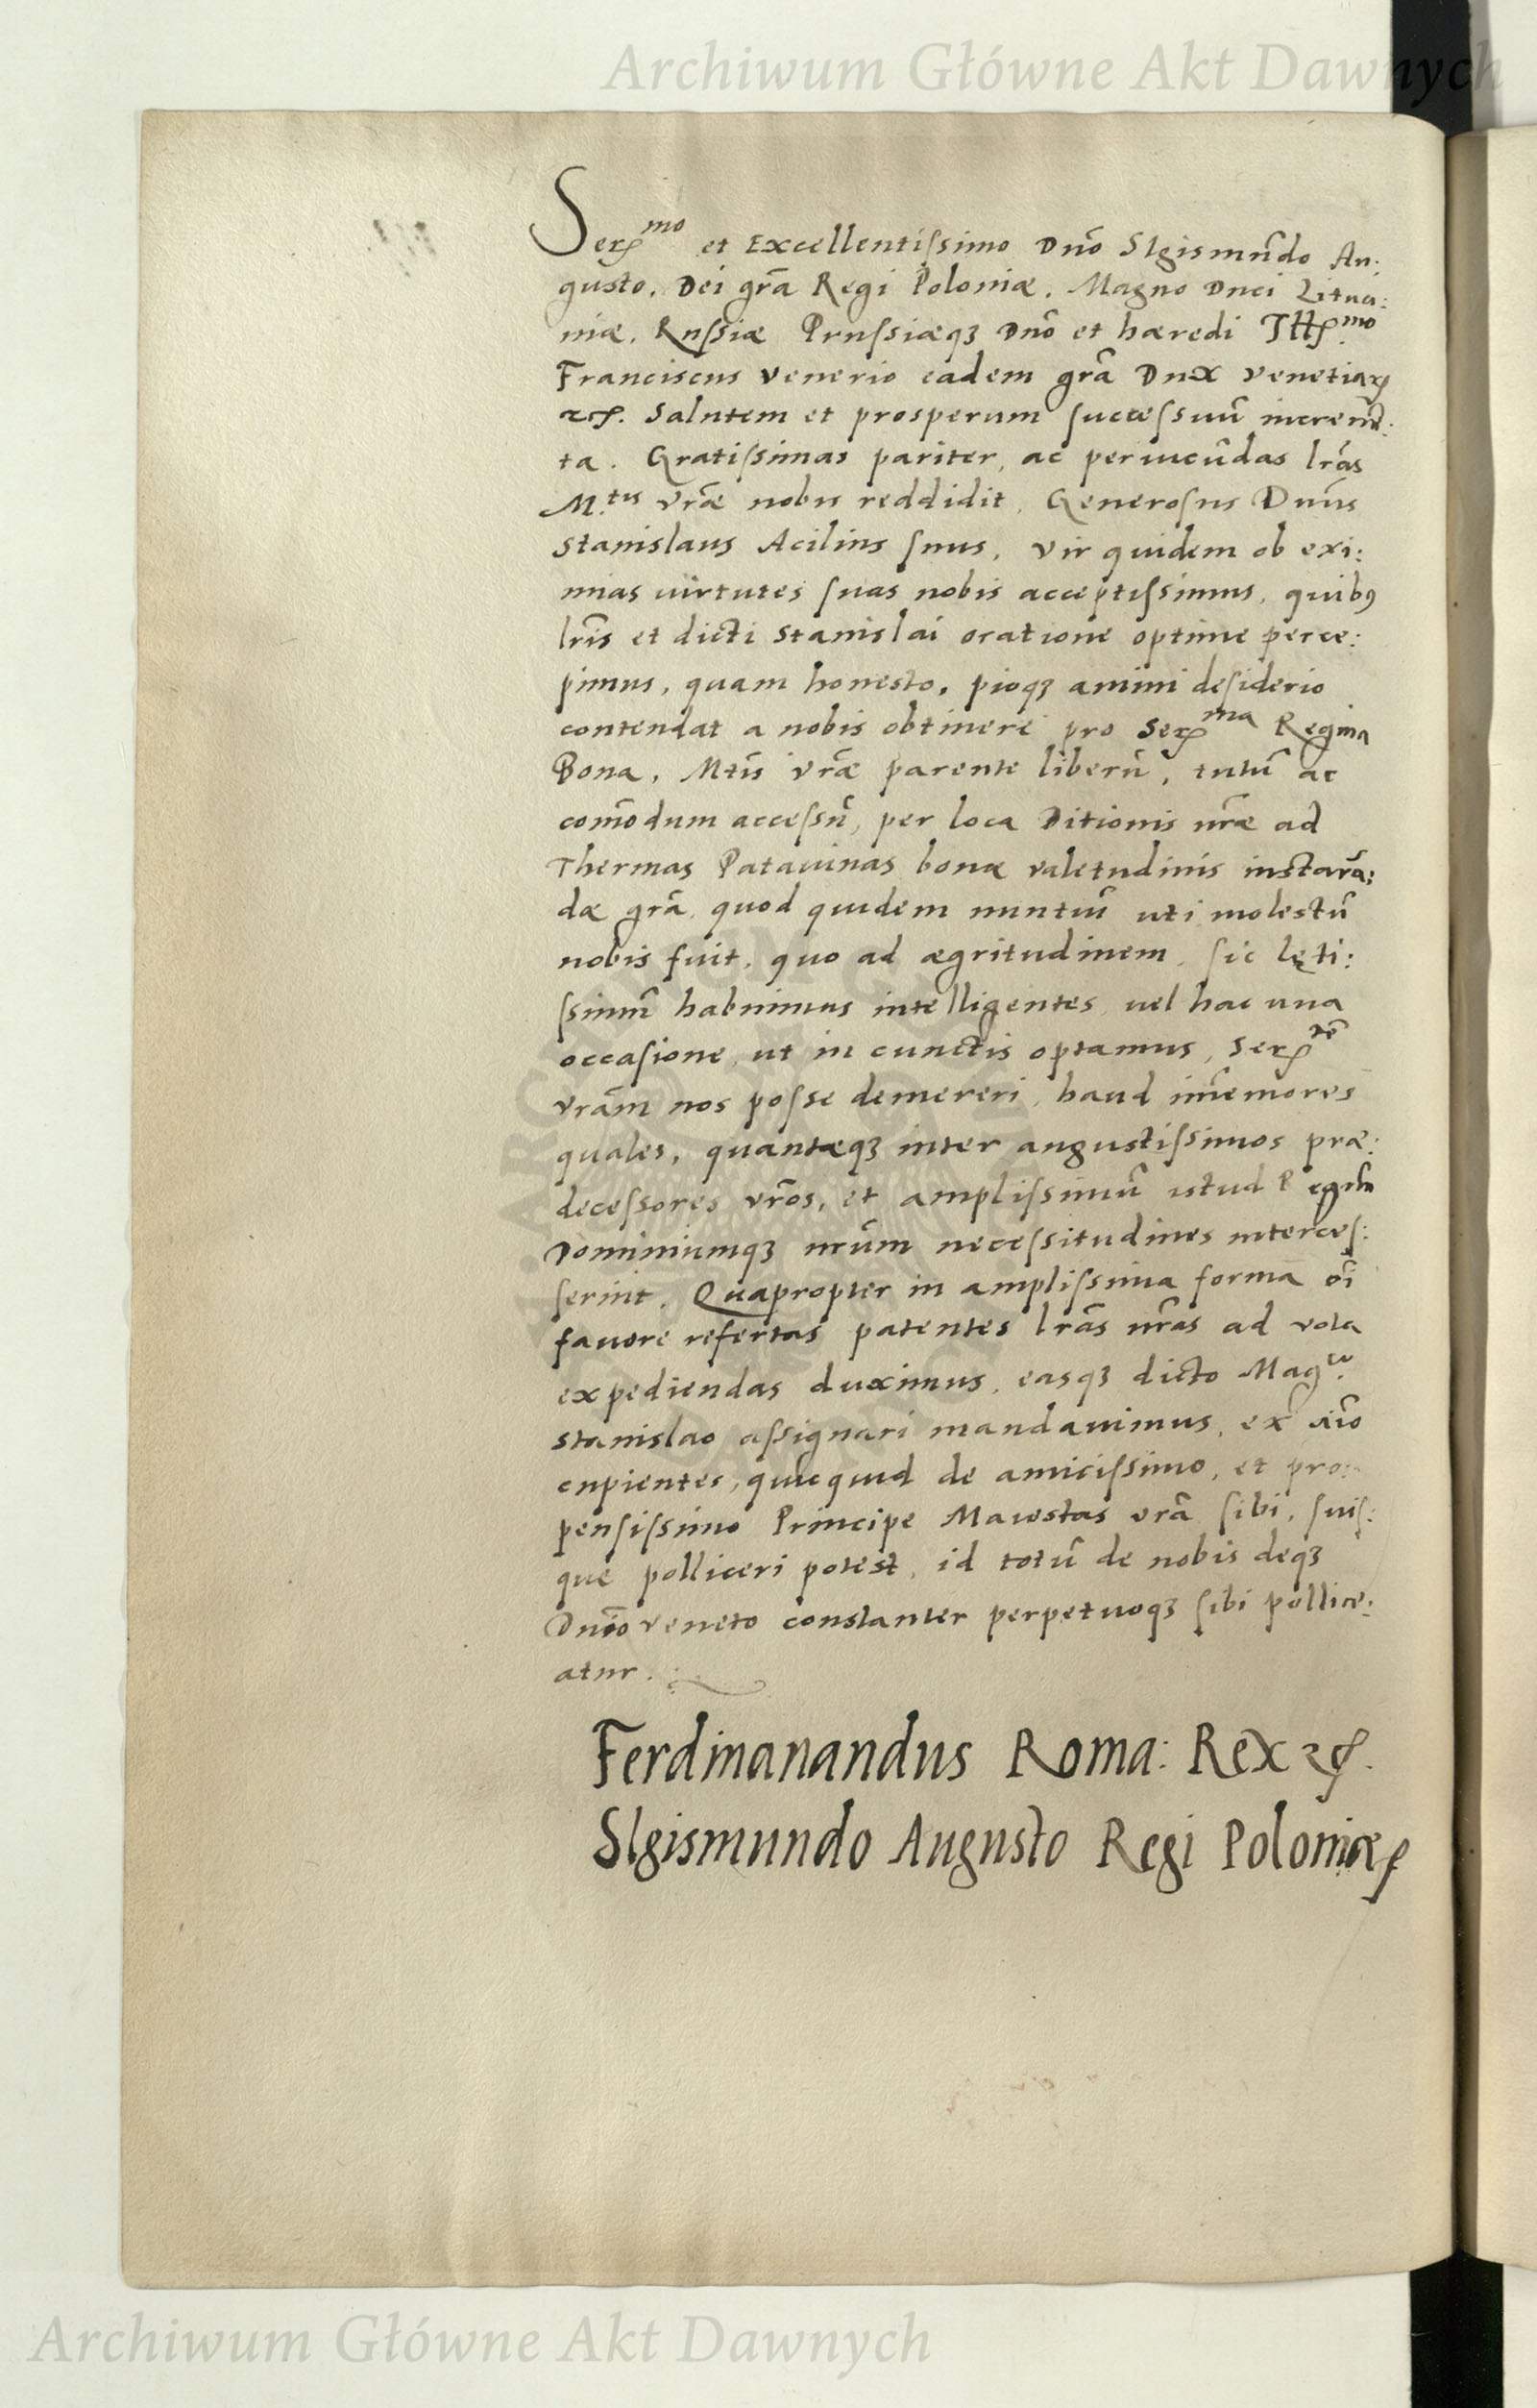 Archiwum Główne Akt Dawnych
Serꝫᵐᵒ et Excellentiſsimo Dnō SIgismūndo Au:
gusto, Dei grā Regi Poloniæ, Magno Duci Litua:
niæ, Ruſsiæ Pruſsiæqꝫ Dnō et hæredi Illꝫᵐᵒ
Franciscus Venerio eadem grā Dux Venetiaꝝ
ꝛcꝭ. Salutem et prosperum ſucceſsuū increm̄:
ta. Gratiſsimas pariter, ac periucūndas lrās
M.ᵗⁱˢ vrāe nobis reddidit, Generoſus Dnūs
Stanislaus Acilius ſuus, vir quidem ob exi:
mias uirtutes ſuas nobis acceptiſsimus, quibꝰ
lrīs et dicti Stanislai oratione optime perce:
pimus, quam honesto, pioqꝫ animi deſiderio
contendat a nobis obtinere pro Serꝫᵐᵃ Regina
Bona, Mtīs vrāe parente liberū, tutū ac
com̄odum acceſsū, per loca Ditionis nrāe ad
Thermas Patauinas bonæ valetudinis instarā:
dæ grā, quod quidem nuntiū uti molestū
nobis fuit, quo ad ægritudinem, ſic lęti:
ſsimū habuimus intelligentes, uel hac una
occaſione, ut in cunctis optamus, Serꝫᵗᵉ̄
vrām nos poſse demereri, haud im̄emores
quales, quantæqꝫ inter augustiſsimos præ:
deceſsores vrōs, et ampliſsimū istud Regnū
Dominiumqꝫ nrūm neceſsitudines interceſ:
ſerint. Quapropter in amplissima forma oī
fauore refertas patentes lrās nrās ad vota
expediendas duximus, easqꝫ dicto Magᶜᵒ.
Stanislao aſsignari mandauimus, ex aīo
cupientes, quicquid de amiciſsimo, et pro:
penſiſsimo Principe Maiestas vrā ſibi, ſuiſ:
que polliceri potest, id totū de nobis deqꝫ
Dnīo Veneto constanter perpetuoqꝫ ſibi pollice:
atur.
Ferdinanandus Roma: Rex ꝛcꝭ.
SIgismundo Augusto Regi Poloniæ ꝭ
Archiwum Główne Akt Dawnych